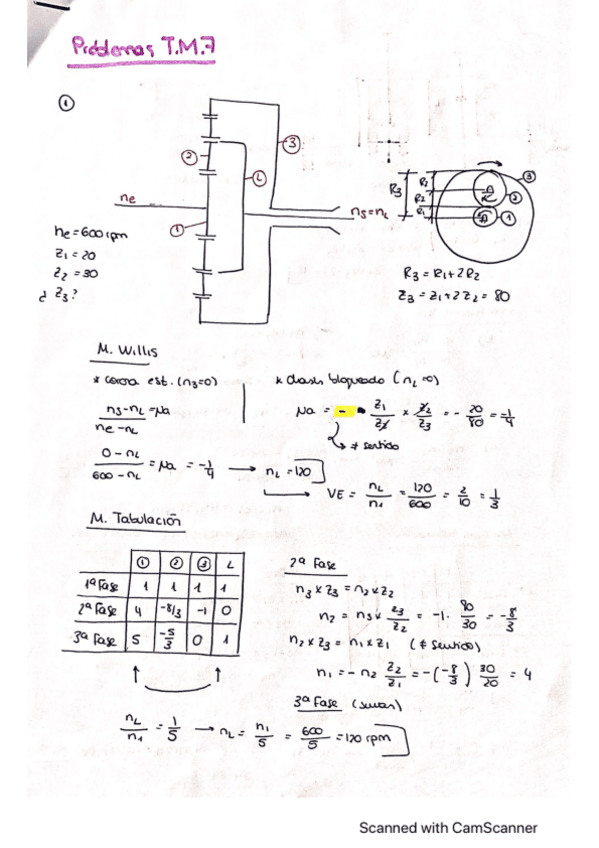 Problemas T.M.7
①
② L ③
ne
①
ns=nL
ne = 600 rpm
Z1 = 20
Z2 = 30
¿ Z3?
R3 R2 R2 R1 ③ ② ①
R3 = R1 + 2R2
Z3 = Z1 + 2Z2 = 80
M. Willis
* corona est. (n3=0)
* chasis bloqueado (nL=0)
ns-nL / ne-nL = μa
μa = - Z1/Z2 x Z2/Z3 = - 20/80 = -1/4
↳ ≠ sentido
0-nL / 600-nL = μa = -1/4 → nL = 120
→ VE = nL/n1 = 120/600 = 2/10 = 1/3
M. Tabulación
① ② ③ L
1ª Fase 1 1 1 1
2ª Fase 4 -8/3 -1 0
3ª Fase 5 -5/3 0 1
2ª Fase
n3 x Z3 = n2 x Z2
n2 = n3 x Z3/Z2 = -1· 80/30 = -8/3
n2 x Z3 = n1 x Z1 (≠ sentido)
n1 = - n2 Z2/Z1 = -(-8/3) 30/20 = 4
3ª Fase (suman)
nL/n1 = 1/5 → nL = n1/5 = 600/5 = 120 rpm
Scanned with CamScanner